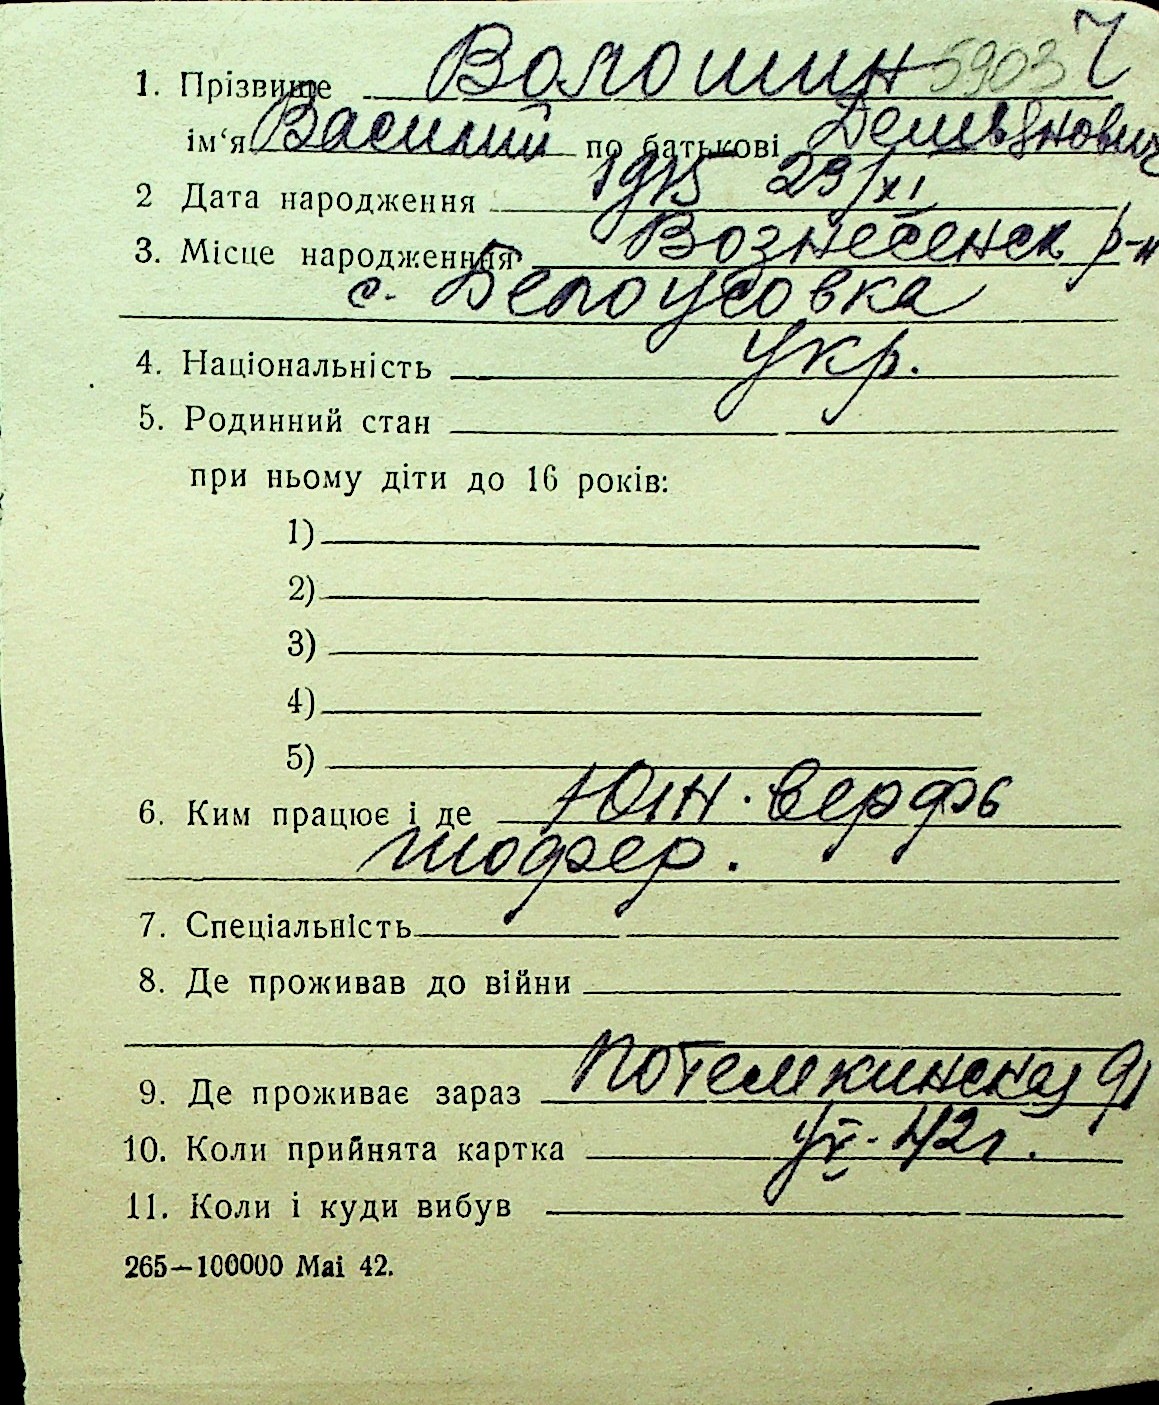 1. Прізвище Волошин 5903 Ч
ім'я Василий по батькові Демьянович
2 Дата народження 1915 29/XI
3. Місце народження Вознесенск р-н
с. Белоусовка
4. Національність укр.
5. Родинний стан
при ньому діти до 16 років:
1)
2)
3)
4)
5)
6. Ким працює і де Юж. верфь
шофер.
7. Спеціальність
8. Де проживав до війни
9. Де проживає зараз Потемкинская 91
10. Коли прийнята картка 42г.
11. Коли і куди вибув
265—100000 Mai 42.